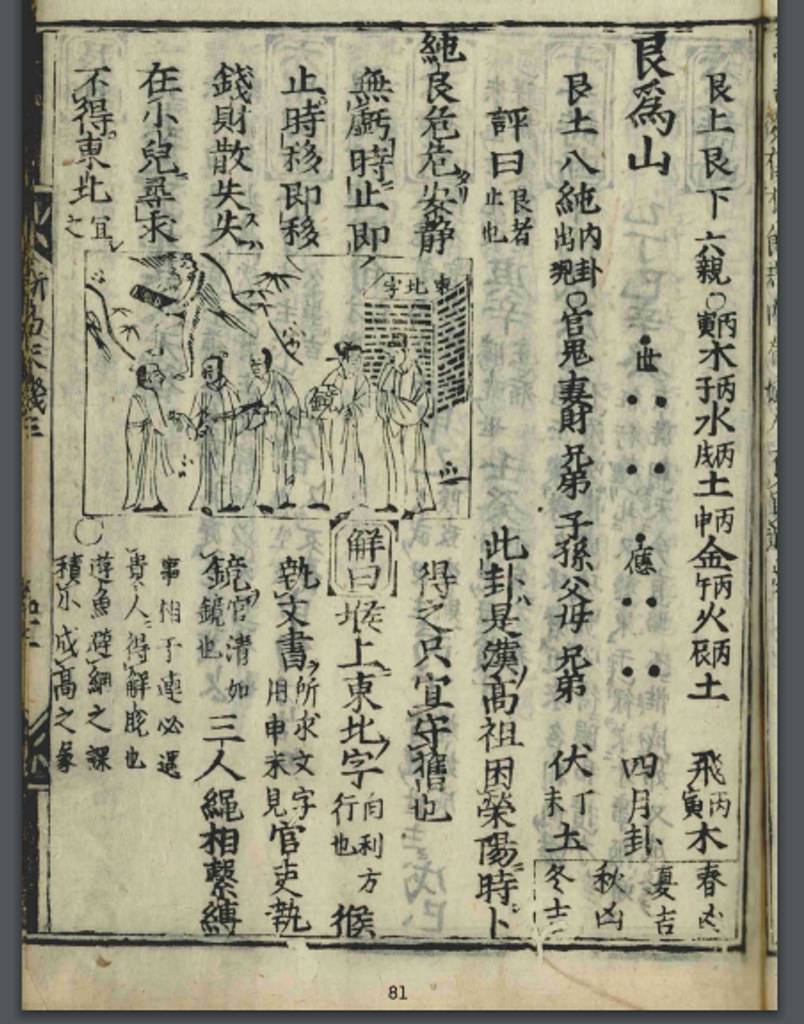 艮上艮下六親○丙寅木丙子水丙戌土丙申金丙午火丙辰土 飛丙寅木
艮為山 世 應 四月卦
艮土八純內卦出現○官鬼妻財兄弟子孫父母兄弟 伏丁未土
春凶
夏吉
秋凶
冬吉
評曰艮者止也
純艮危危安靜
無虧時止即
止時移即移
錢財散失失
在小兒尋求
不得東北宜之
東北字
此卦是漢高祖困荣陽時卜
得之只宜守舊也
解曰堠上東北字向利方行也 猴
執文書所求文字用申未見官吏執
鏡官清如鏡也三人繩相繫縛
事相干連必遇
貴人得解脫也
遊魚避網之課
積小成高之象
81